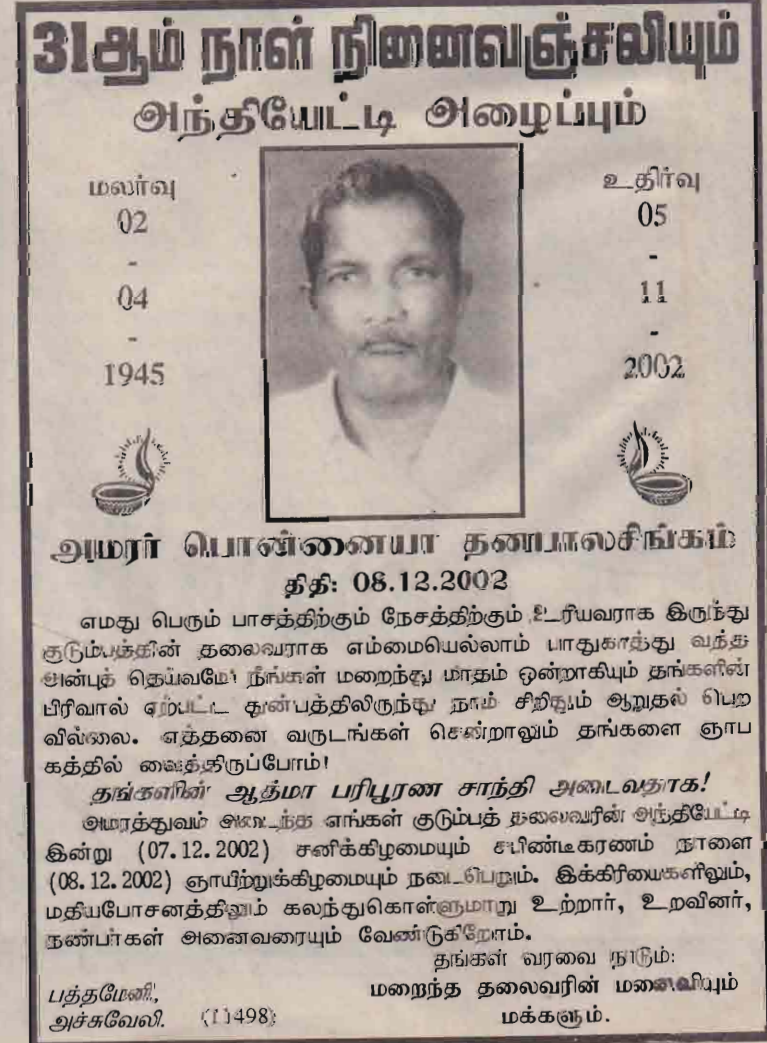 31ஆம் நாள் நினைவஞ்சலியும்
அந்தியேட்டி அழைப்பும்
மலர்வு
02
-
04
-
1945
உதிர்வு
05
-
11
-
2002
அமரர் பொன்னையா தனபாலசிங்கம்
திதி: 08.12.2002
எமது பெரும் பாசத்திற்கும் நேசத்திற்கும் உரியவராக இருந்து
குடும்பத்தின் தலைவராக எம்மையெல்லாம் பாதுகாத்து வந்த
அன்புத் தெய்வமே! நீங்கள் மறைந்து மாதம் ஒன்றாகியும் தங்களின்
பிரிவால் ஏற்பட்ட துன்பத்திலிருந்து நாம் சிறிதும் ஆறுதல் பெற
வில்லை. எத்தனை வருடங்கள் சென்றாலும் தங்களை ஞாப
கத்தில் வைத்திருப்போம்!
தங்களின் ஆத்மா பரிபூரண சாந்தி அடைவதாக!
அமரத்துவம் அடைந்த எங்கள் குடும்பத் தலைவரின் அந்தியேட்டி
இன்று (07.12.2002) சனிக்கிழமையும் சபிண்டீகரணம் நாளை
(08.12.2002) ஞாயிற்றுக்கிழமையும் நடைபெறும். இக்கிரியைகளிலும்,
மதியபோசனத்திலும் கலந்துகொள்ளுமாறு உற்றார், உறவினர்,
நண்பர்கள் அனைவரையும் வேண்டுகிறோம்.
தங்கள் வரவை நாடும்:
மறைந்த தலைவரின் மனைவியும்
மக்களும்.
பத்தமேனி,
அச்சுவேலி. (11498)